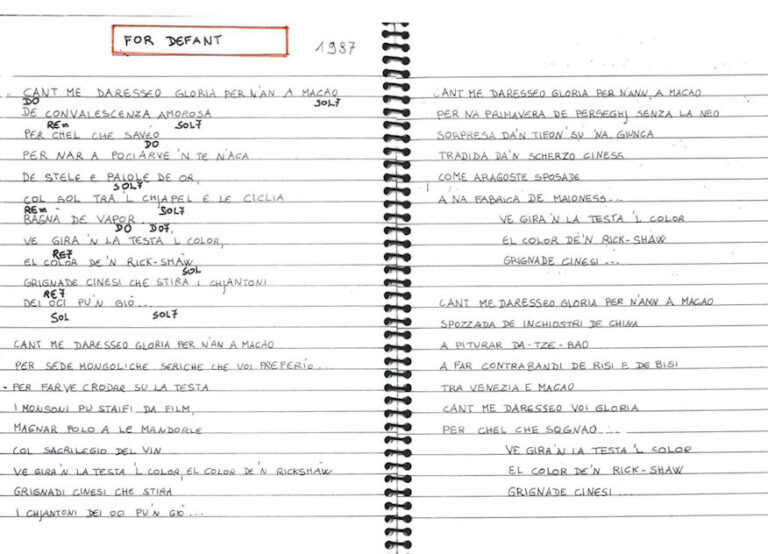 FOR DEFANT
1987
CANT ME DARESSEO GLORIA PER N'AN A MACAO
DO SOL7
DE CONVALESCENZA AMOROSA
REm SOL7
PER CHEL CHE SAVÉO
DO
PER NAR A POCIARVE 'N TE N'ACA
DE STELE E PAIOLE DE OR,
SOL7
COL SOL TRA 'L CHJAPEL E LE CICLIA
REm SOL7
BAGNA DE VAPOR
DO DO7
VE GIRA 'N LA TESTA 'L COLOR,
EL COLOR DE 'N RICK-SHAW,
RE7 SOL
GRIGNADE CINESI CHE STIRA I CHJANTONI
RE7
DEI OCI PU'N GIÒ...
SOL SOL7
CANT ME DARESSEO GLORIA PER N'AN A MACAO
PER SEDE MONGOLICHE SERICHE CHE VOI PREFERIO...
PER FARVE CRODAR SU LA TESTA
I MONSONI PU STAIFI DA FILM,
MAGNAR POLO A LE MANDORLE
COL SACRILEGIO DEL VIN
VE GIRA 'N LA TESTA 'L COLOR, EL COLOR DE 'N RICKSHAW
GRIGNADI CINESI CHE STIRA
I CHJANTONI DEI OCI PU'N GIÒ...
CANT ME DARESSEO GLORIA PER N'ANN, A MACAO
PER NA PRIMAVERA DE PERSEGHJ SENZA LA NEO
SORPRESA DA'N TIFON SU 'NA GIUNCA
TRADIDA DA'N SCHERZO CINESS
COME ARAGOSTE SPOSADE
A NA FABRICA DE MAIONESS...
VE GIRA 'N LA TESTA 'L COLOR
EL COLOR DE'N RICK-SHAW
GRIGNADE CINESI...
CANT ME DARESSEO GLORIA PER N'ANN A MACAO
SPOZZADA DE INCHIOSTRI DE CHINA
A PITURAR DA-TZE-BAO
A FAR CONTRABANDI DE RISI E DE BISI
TRA VENEZIA E MACAO
CANT ME DARESSEO VOI GLORIA
PER CHEL CHE SOGNAO...
VE GIRA 'N LA TESTA 'L COLOR
EL COLOR DE'N RICK-SHAW
GRIGNADE CINESI...